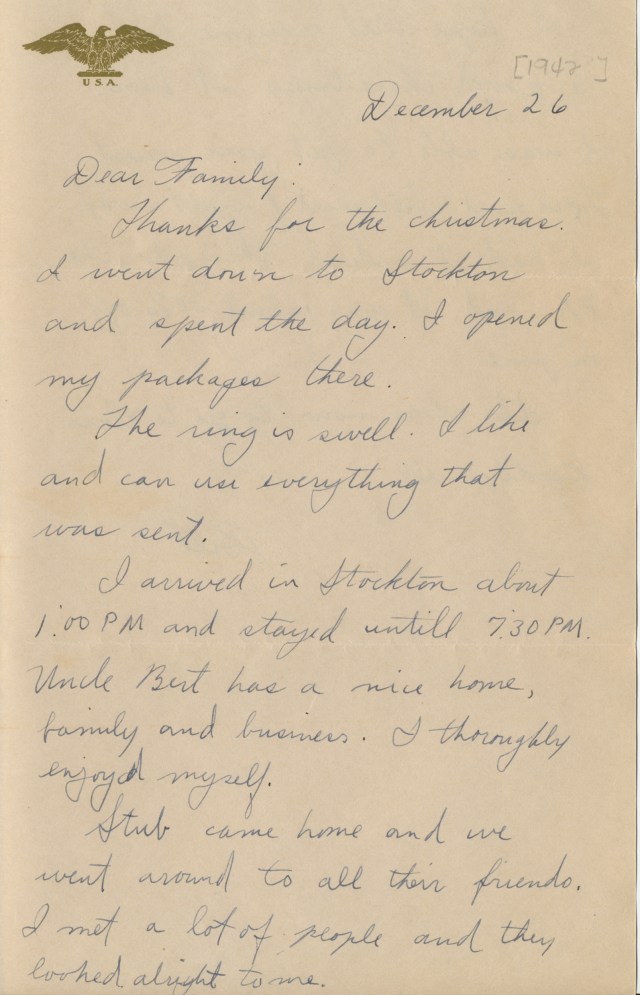 U.S.A.
[1942]
December 26
Dear Family:
Thanks for the christmas.
I went down to Stockton
and spent the day. I opened
my packages there.
The ring is swell. I like
and can use everything that
was sent.
I arrived in Stockton about
1:00 PM and stayed untill 7:30 PM.
Uncle Bert has a nice home,
family and business. I thoroughly
enjoyd myself.
Stub came home and we
went around to all their friends.
I met a lot of people and they
looked alright to me.